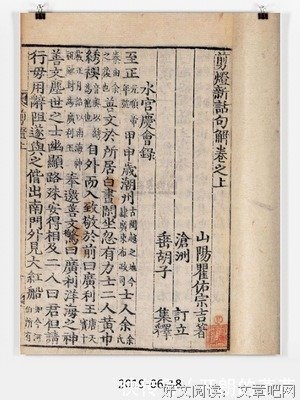 剪燈新話句解卷之上
山陽瞿佑宗吉著
滄洲訂立
垂胡子集釋
水宮慶會錄
至正甲申歲潮州士人余
善文於所居白晝閒坐忽有力士二人黃巾
繡襖自外而入致敬於前曰廣利王
奉邀善文驚曰廣利洋海之神
善文塵世之士幽顯路殊安得相及二人曰君但請
行毋用辭阻遂與之偕出南門外見大紅船
2019-06-18
好文阅读:文章吧网